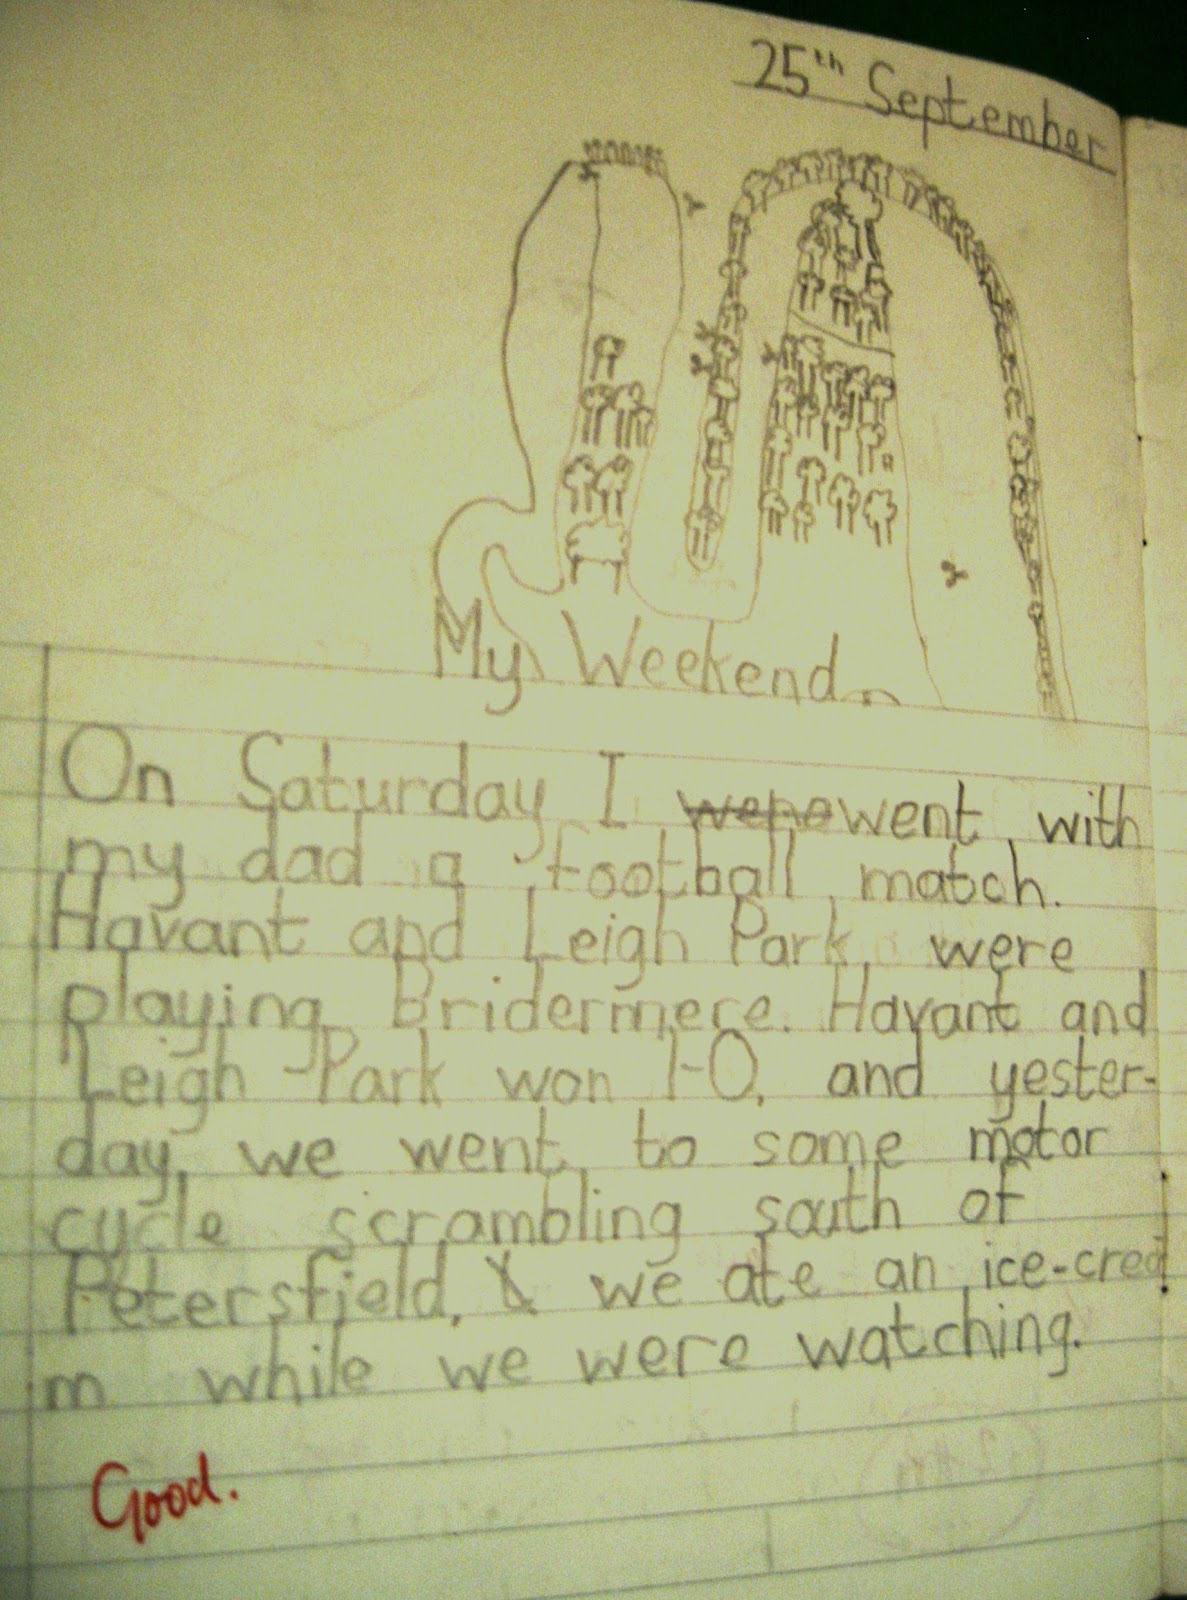 25th September
My Weekend
On Saturday I were went with
my dad a football match.
Havant and Leigh Park were
playing Bridermere. Havant and
Leigh Park won 1-0, and yester-
day, we went to some motor
cycle scrambling south of
Petersfield, & we ate an ice-crea
m while we were watching.
Good.